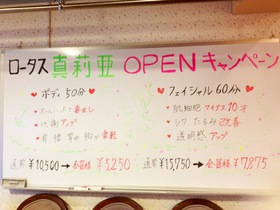 ロータス 真莉亜 OPENキャンペーン
♥ ボディ 50分 ♥
♥ フェイシャル 60分 ♥
・ で毒出し
・代謝アップ
・肩 腰 背中 脚が
・肌細胞 マイナス10才
・シワ たるみ改善
・透明感 アップ
通常 ¥10,500 → 会員様 ¥5,250
通常 ¥15,750 → 会員様 ¥7,875